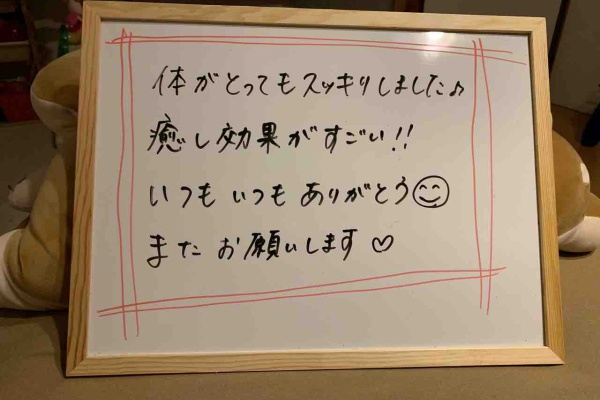 体がとってもスッキリしました♪
癒し効果がすごい!!
いつもいつもありがとう☺
またお願いします♡